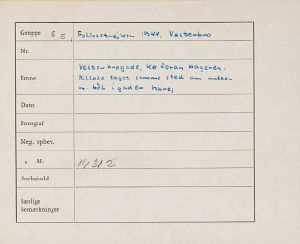 Gruppe 5 E, Folkestrejken 1944. Vesterbro
Nr.
Emne Vesterbrogade, kø foran bageren.
Billede taget samme sted om natten
m. bål i gaden haves
Dato
Fotograf
Neg. opbev.
" Nr. 14312
Forbehold
Særlige
bemærkninger